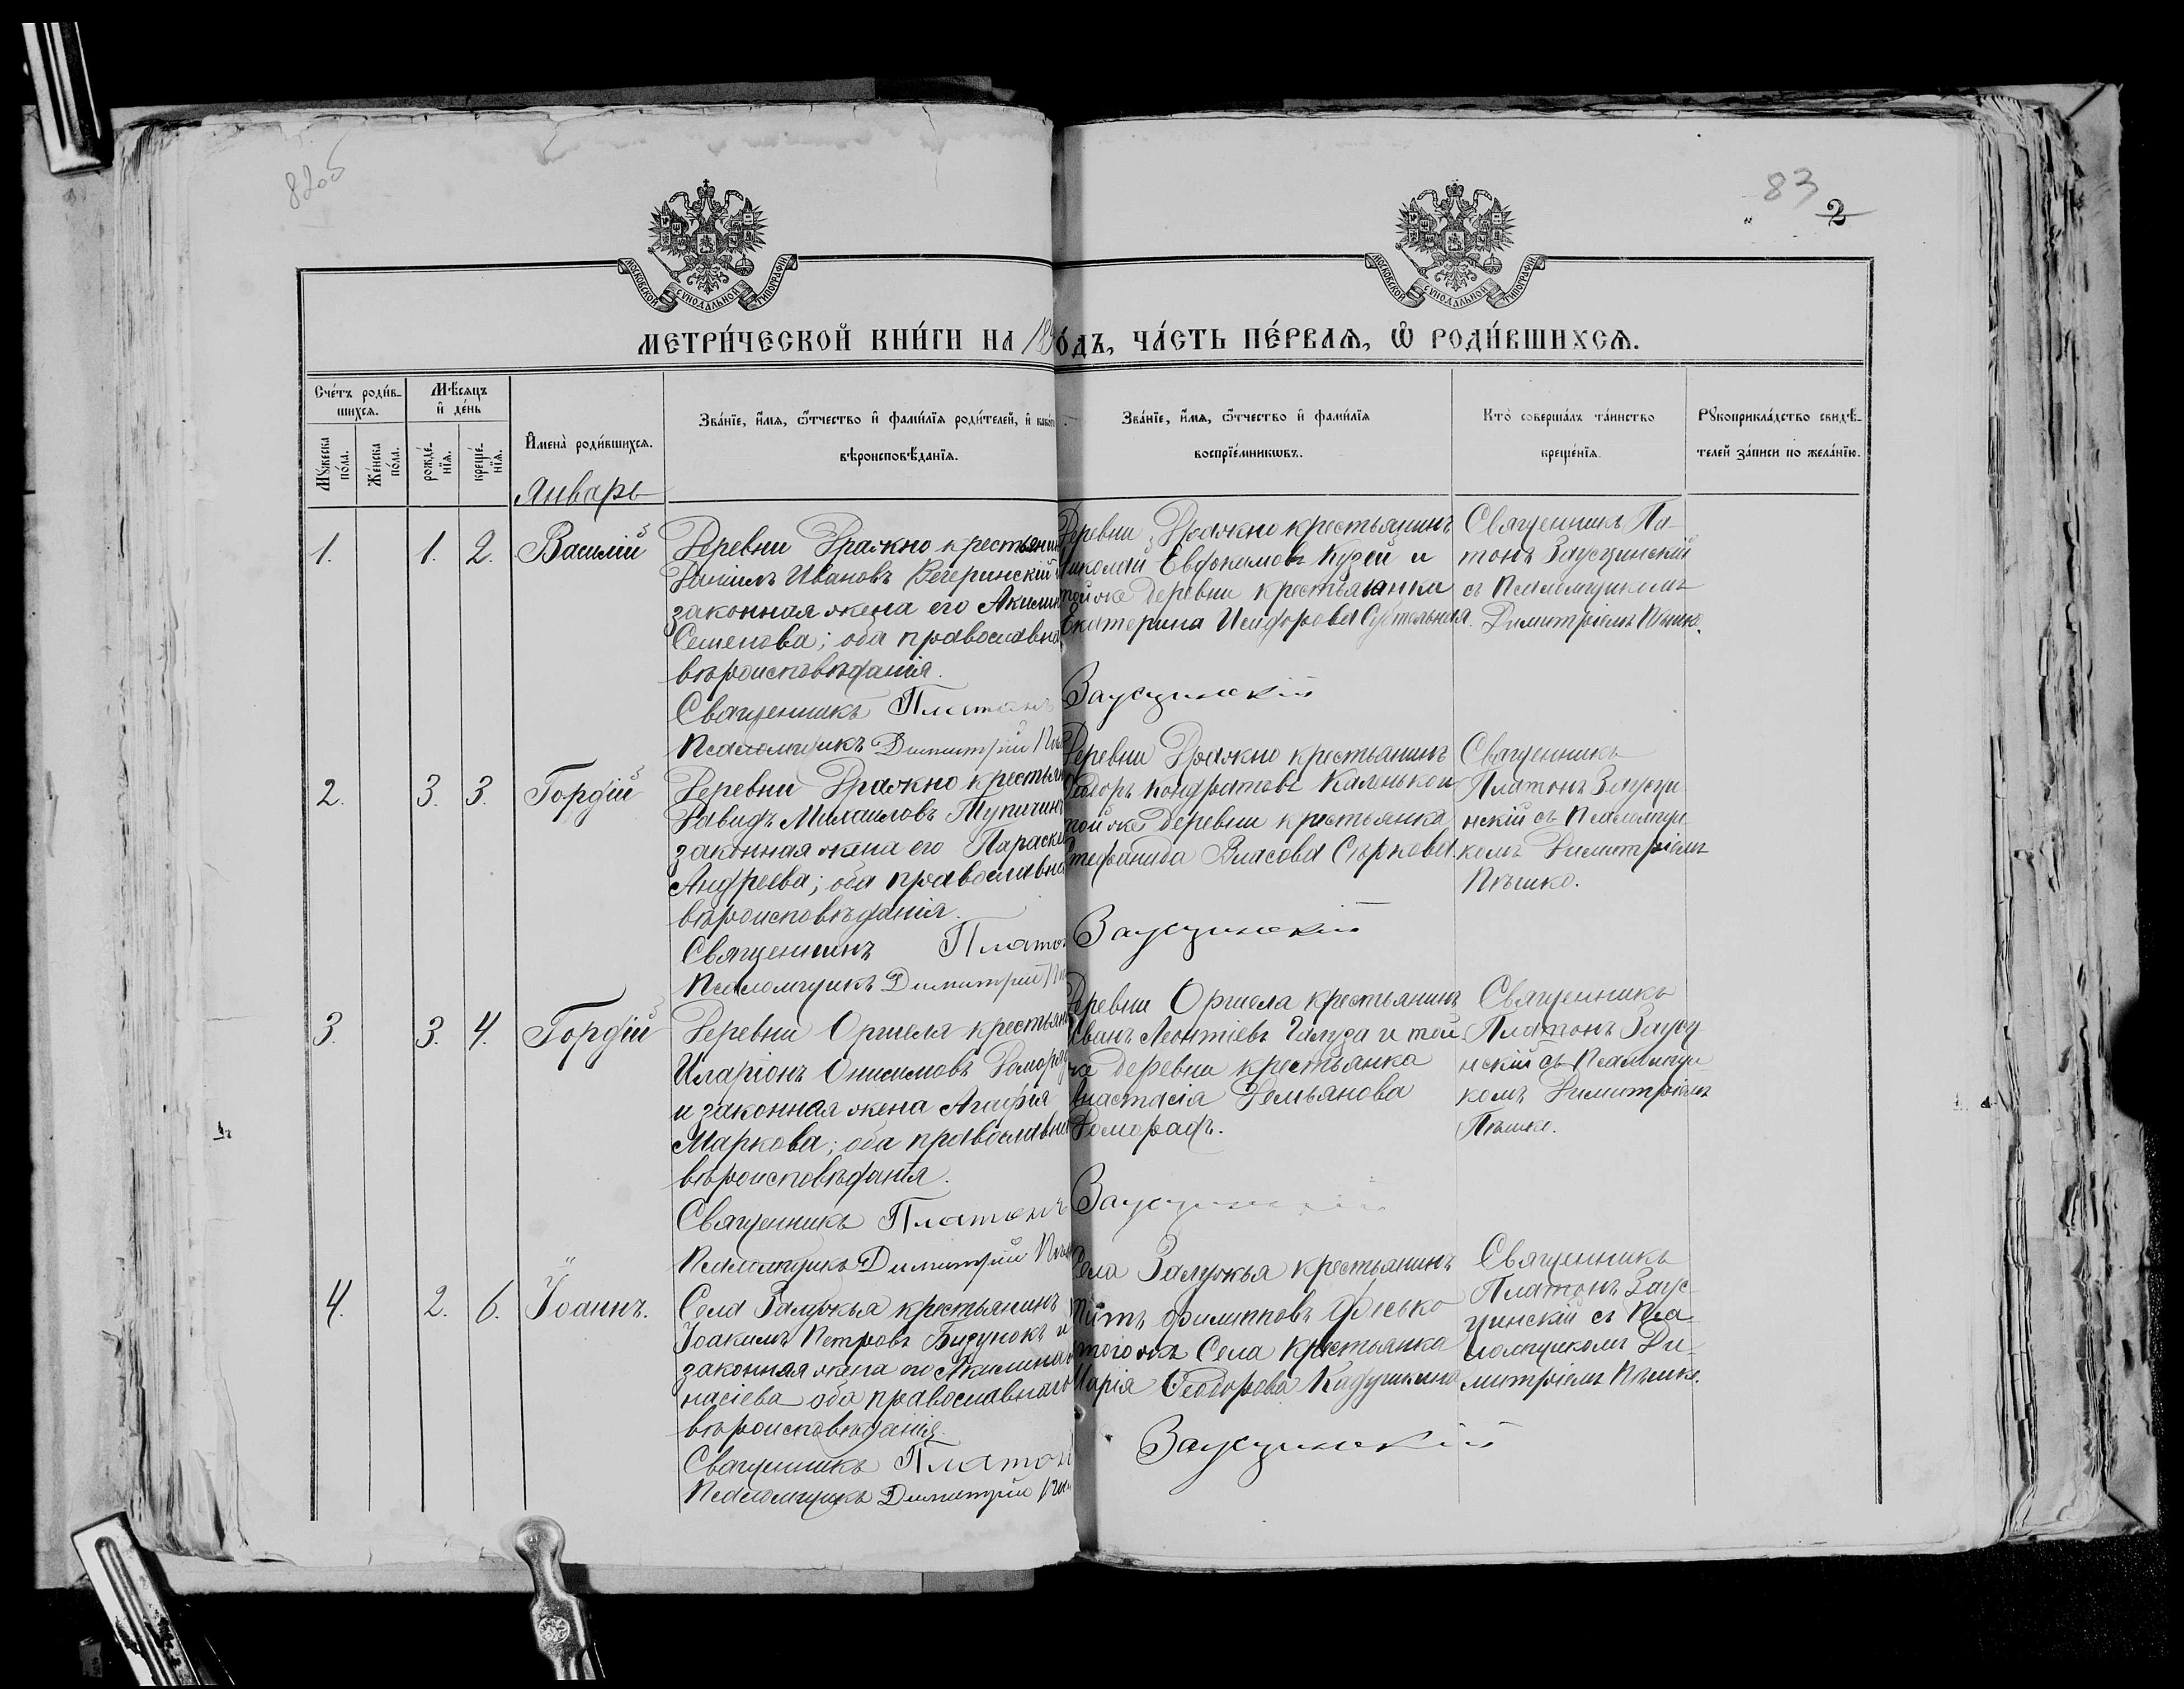 83
2
МОСКОВСКОЙ СѴНОДАЛЬНОЙ ТИПОГРАФІИ
МОСКОВСКОЙ СѴНОДАЛЬНОЙ ТИПОГРАФІИ
МЕТРИ́ЧЕСКОЙ КНИ́ГИ НА 18 О́ДЪ, ЧА́СТЬ ПЕ́РВАѦ, Ѡ҆ РОДИ́ВШИХСѦ.
Счéтъ роди́в-
шихся.
Мѣ́сяцъ
и҆ дéнь
Мꙋ́жеска по́ла.
Жéнска по́ла.
рождé-нїя.
крещé-нїя.
И҆мена̀ роди́вшихся.
Зва́нїе, и҆́мя, ѻ҆́тчество и҆ фами́лїя роди́телей, и҆ како́гѡ
вѣроисповѣ́данїя.
Зва́нїе, и҆́мя, ѻ҆́тчество и҆ фами́лїя
воспрїéмникѡвъ.
Кто̀ соверша́лъ та́инство
крещéнїя.
Рꙋкоприкла́дство свидѣ́-
телей за́писи по жела́нїю.
Январь
1. 1. 2. Василій
Деревни Дражно крестьянин
Даніилъ Ивановъ Вечеринскій
законная жена его Акилин
Семенова; оба православна
вѣроисповѣданія.
Священникъ Платонъ Заусцинскій
Псаломщикъ Димитрій
Деревни Дражно крестьянинъ
Николай Евдокимовъ Кузей и
той же деревни крестьянка
Екатерина Исидорова
Священникъ Пла-
тонъ Заусцинскій
съ Псаломщикомъ
Димитріемъ Пѣшко.
2. 3. 3. Гордій
Деревни Дражно крестьян
Давидъ Михаиловъ Тупичин
законная жена его Параске
Андреева; оба православна
вѣроисповѣданія.
Священникъ Платон Заусцинскій
Псаломщикъ Димитрій
Деревни Дражно крестьянинъ
Кондратовъ
той же деревни крестьянка
Стефанида Власова Сѣркова.
Священникъ
Платонъ Заусци
нскій съ Псаломщи
комъ Димитріемъ
Пѣшко.
3. 3. 4. Гордій
Деревни Оршеля крестьян
Иларіонъ Онисимовъ Домора
и законная жена Агафія
Маркова; оба православн
вѣроисповѣданія.
Священникъ Платонъ Заусцинскій
Псаломщикъ Димитрій
Деревни Оршеля крестьянинъ
Иванъ Леонтіевъ Галуза и той
же деревни крестьянка
Анастасія Демьянова
Доморадъ.
Священникъ
Платонъ Заусц
нскій съ Псаломщи
комъ Димитріемъ
Пѣшко.
4. 2. 6. Іоаннъ.
Села Залужья крестьянинъ
Іоакимъ Петровъ и
законная жена его Акилина
насіева оба православнаго
вѣроисповѣданія.
Священникъ Платон Заусцинскій
Псаломщикъ Димитрій
Села Залужья крестьянинъ
Титъ Филипповъ Фисько
того же Села Крестьянка
Марія Ѳеодорова Кадушкина
Священникъ
Платонъ Заус-
цинскій съ Пса-
ломщикомъ Ди-
митріемъ Пѣшко.